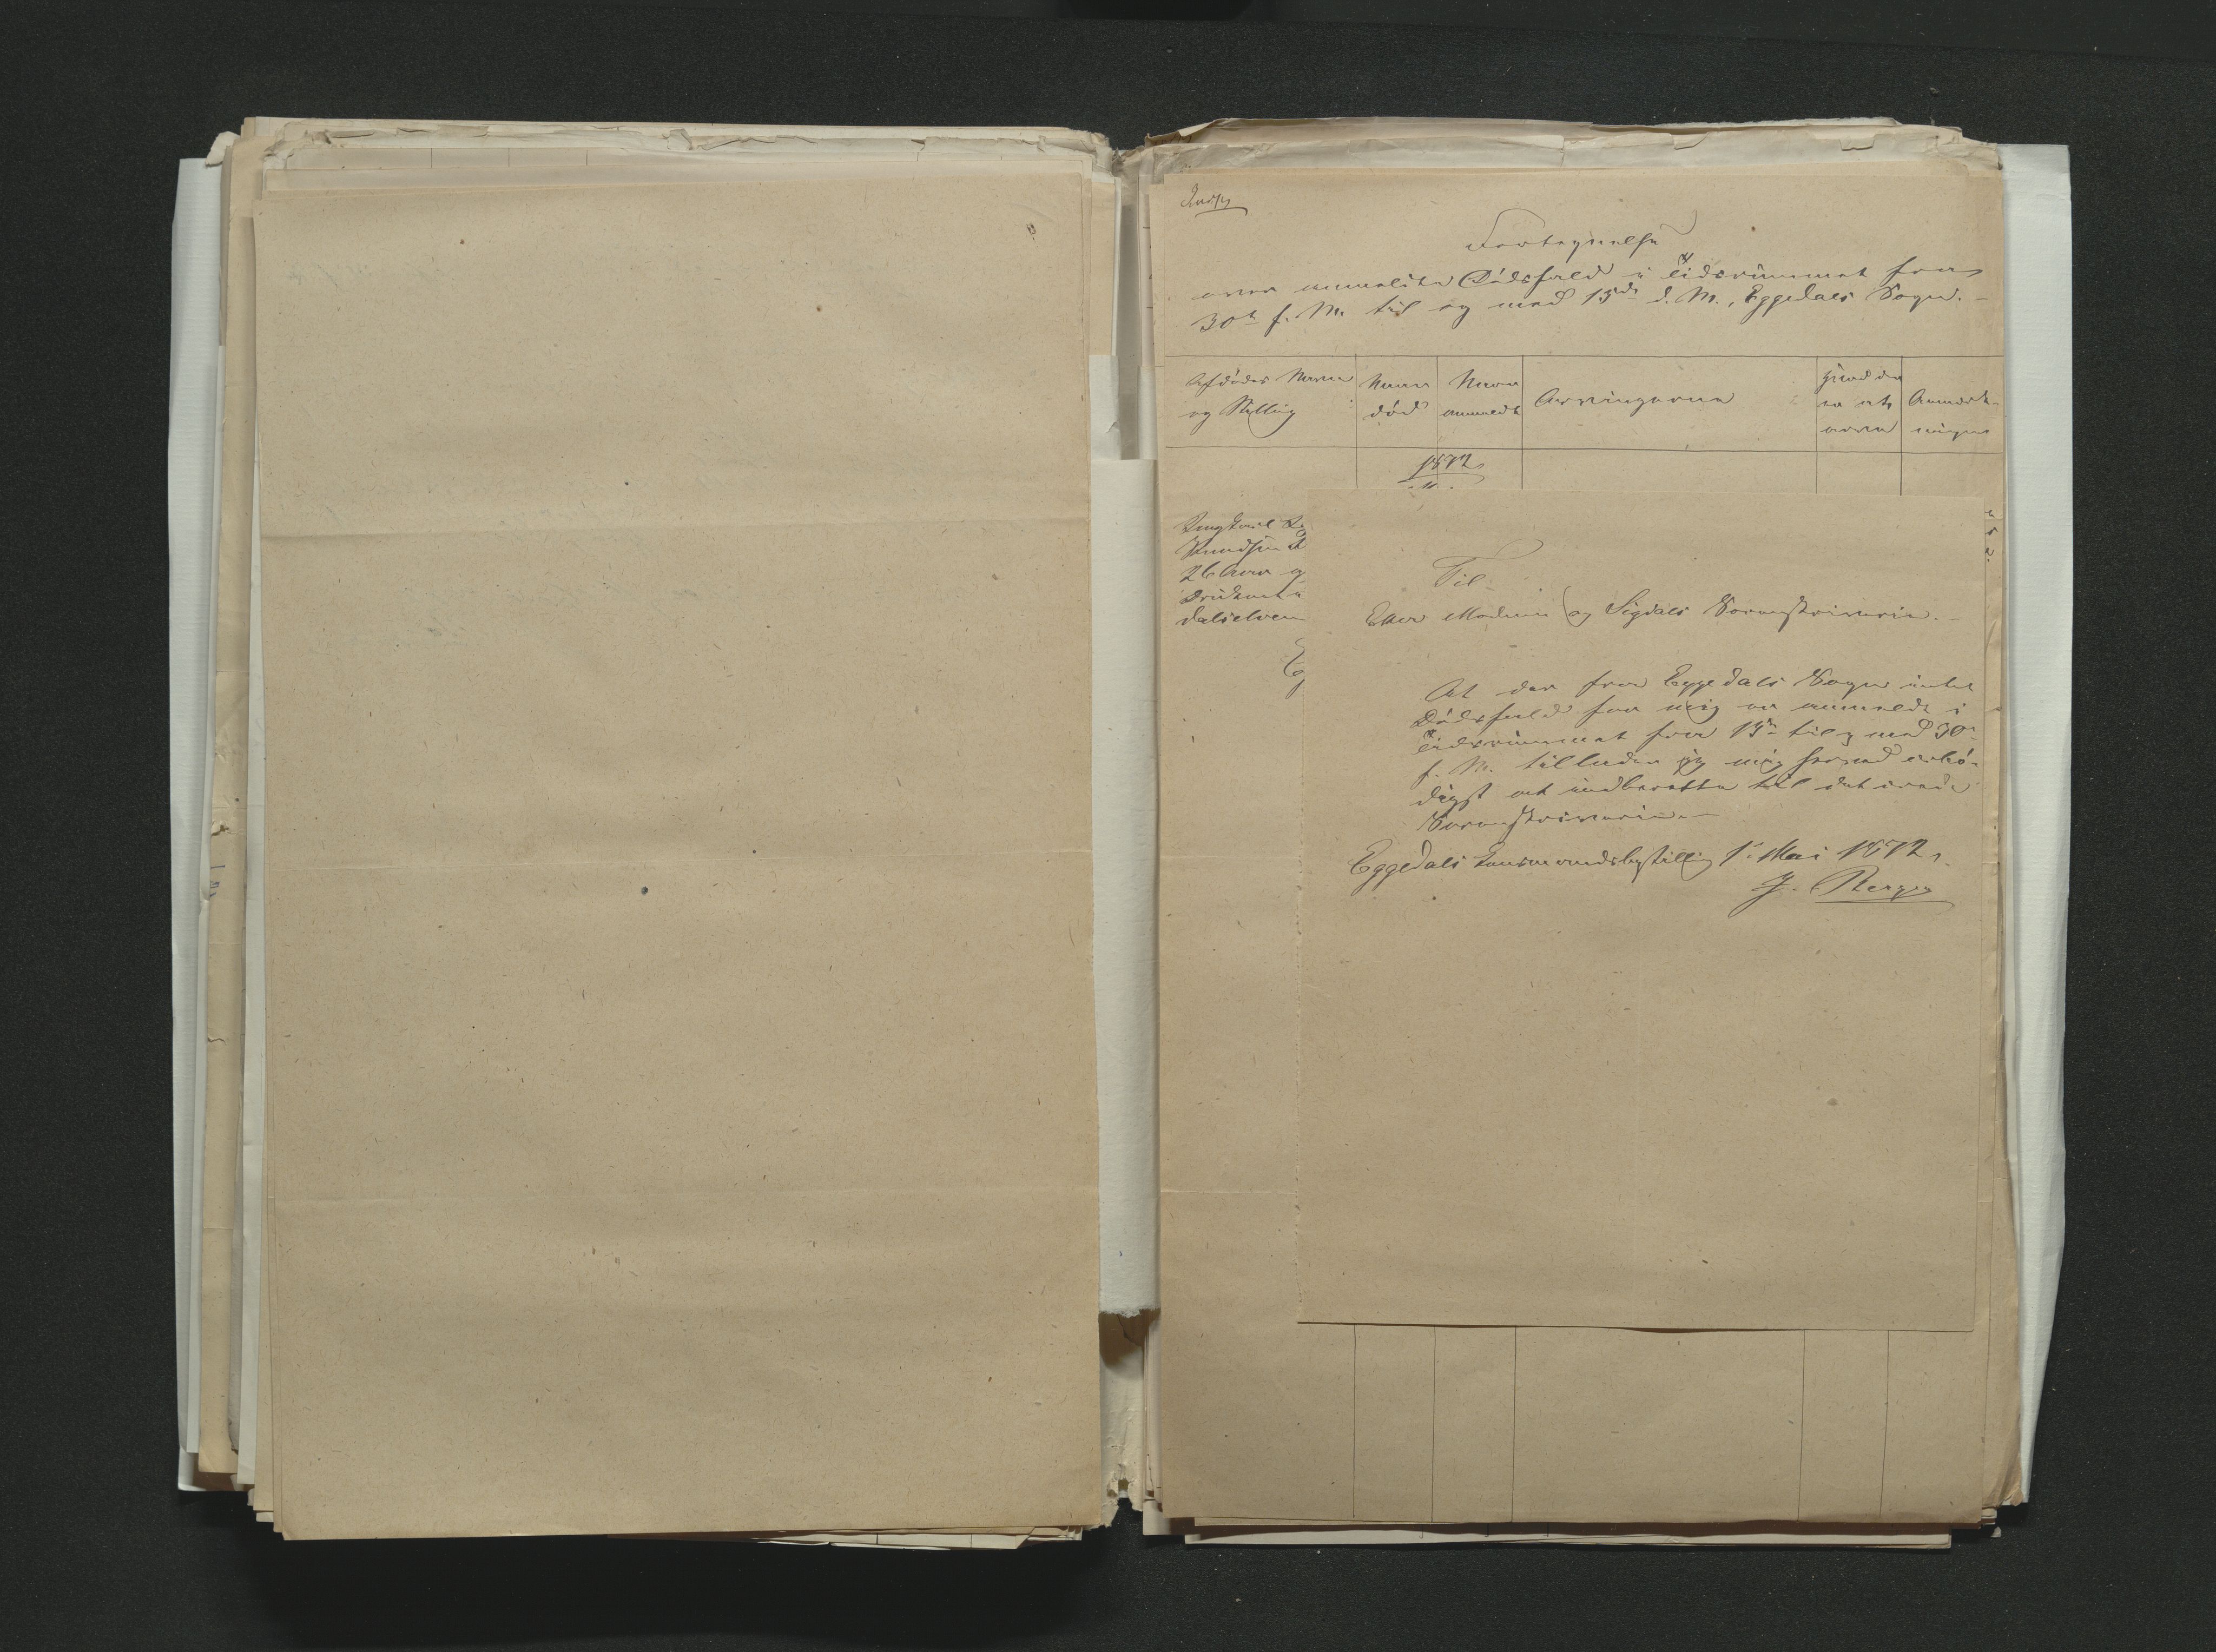 Fortegnelse
over anmeldte Dødsfald i Tidsrummet fra
30te f. M. til og med 15de d. M., Eggedals Sogn.
Afdødes Navn og Stilling
Naar død
Naar anmeldt
Arvingerne
Hvad der er at arve
Anmærkninger
1872
Ungkarl
Knudsen
26 Aar og
Druknet i
dalselven
Til
Eker Modum og Sigdals Sorenskriveri.
At der fra Eggedals Sogn intet
Dødsfald for mig er anmeldt i
Tidsrummet fra 15de til og med 30te
f. M. tillader jeg mig herved ærbø-
digst at indberette til det ærede
Sorenskriveri.
Eggedals Lensmandsbestilling 1ste Mai 1872.